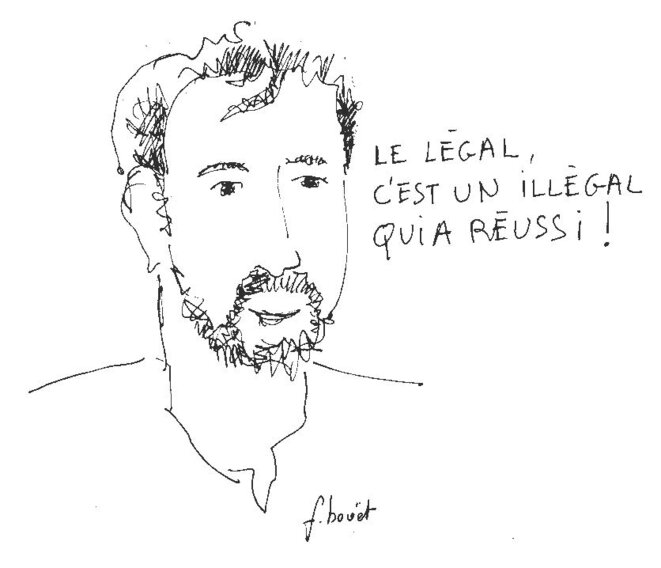 LE LÉGAL,
C'EST UN ILLÉGAL
QUI A RÉUSSI !
f. bouët